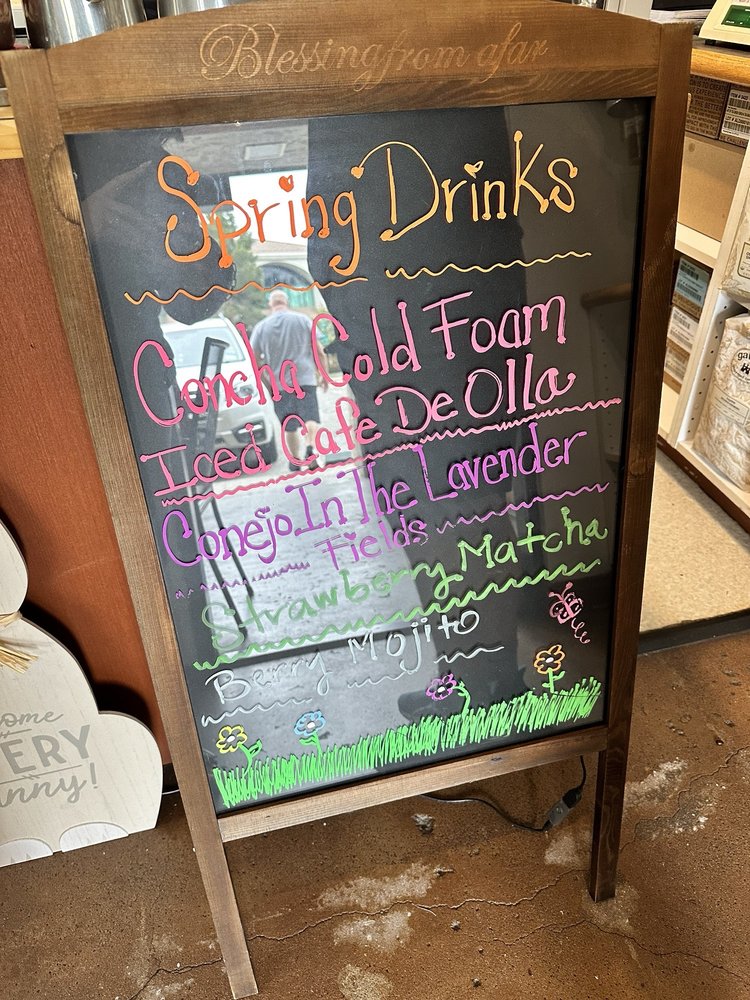 Blessing from afar
Spring Drinks
Concha Cold Foam
Iced Cafe De Olla
Conejo In The Lavender
Fields
Strawberry Matcha
Berry Mojito
ome
ERY
nny!